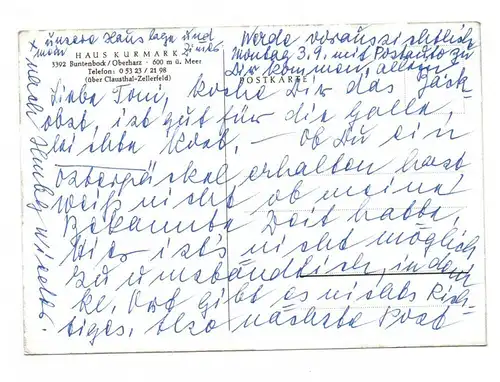 x unsere Hauslage und
mein Zimmer
HAUS KURMARK
3392 Buntenbock / Oberharz - 600 m ü. Meer
Telefon: 0 53 23 / 21 98
(über Clausthal-Zellerfeld)
POSTKARTE
Werde voraussichtlich
Montag 3.9. mit Postauto zu
Dir kommen,
Liebe Toni, koche Dir das Back-
obst, ist gut für die Galle,
leichte Kost, - ob Du ein
Osterpäckel erhalten hast
weiß nicht ob meine
Bekannte Zeit hatte,
Hier ist's nicht möglich
zu umständlich, in der
gibt es nichts Rich-
tiges, Also nächste Post
nach wieder.